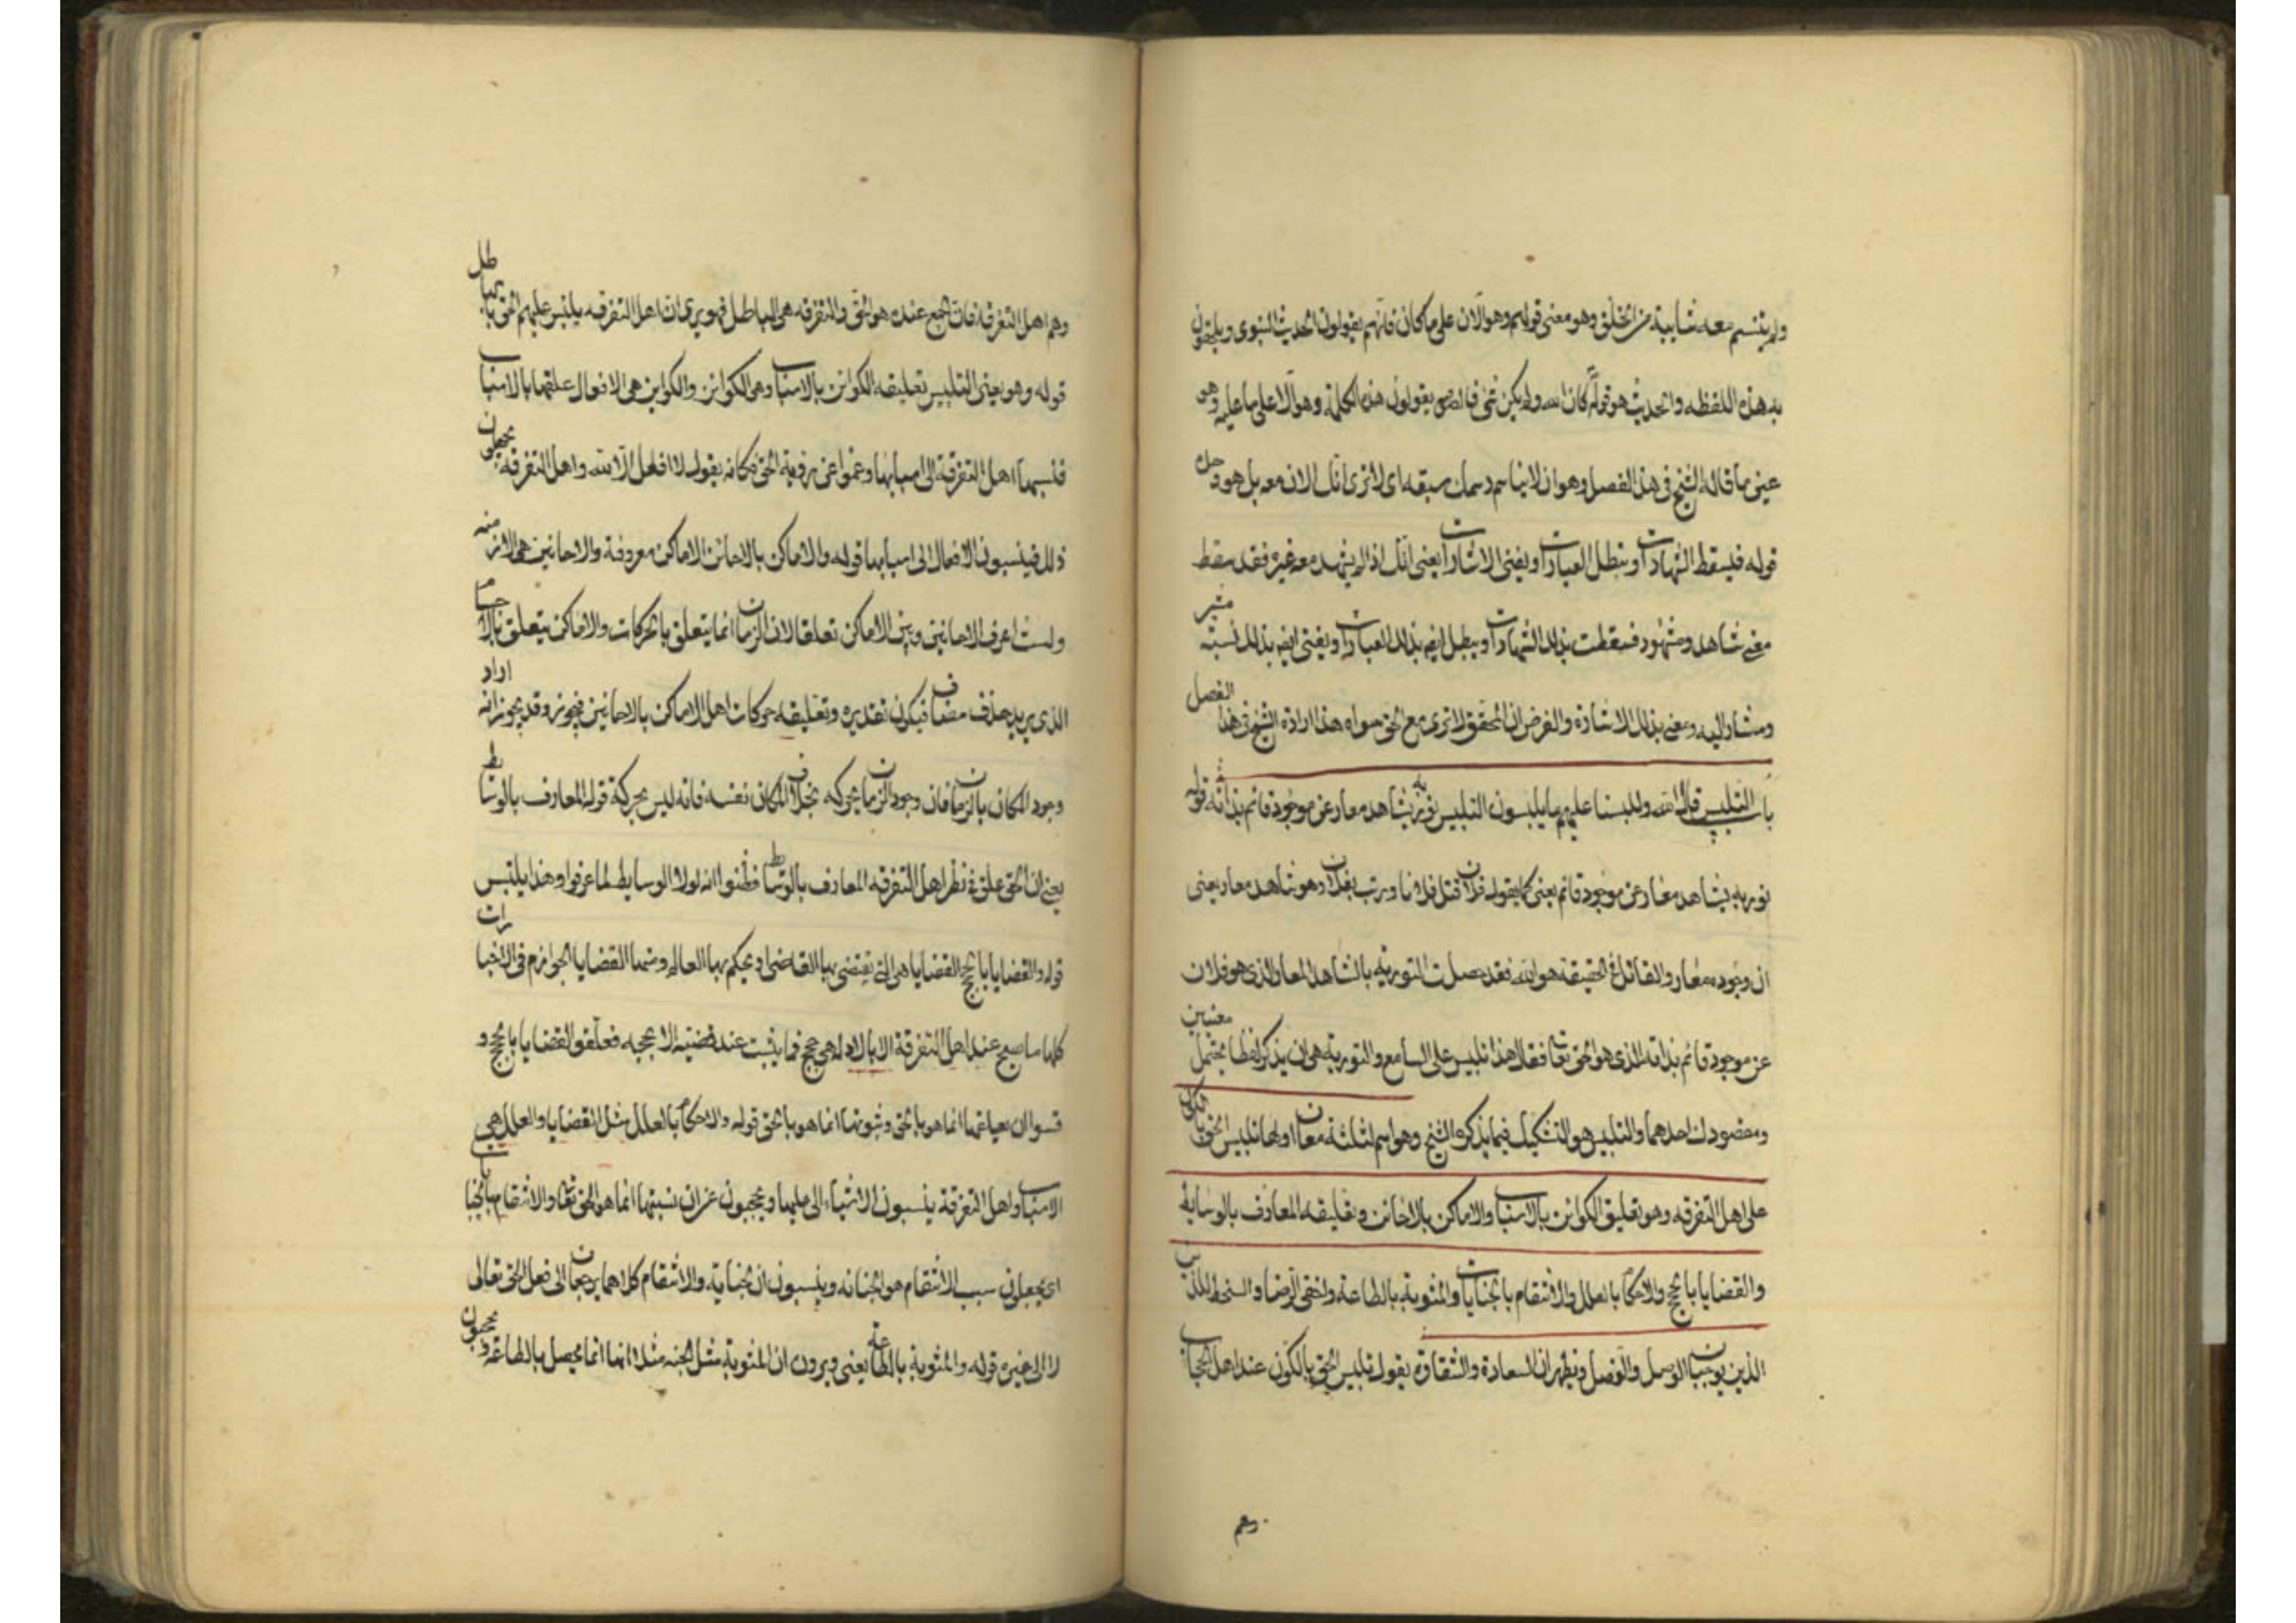 ولم يتسم معه شايبة من الخلق وهو معنى قولهم وهو الآن على ما كان فانهم يقولون الحديث النبوى ويلحقون
به هذه اللفظه والحديث هو قوله كان الله ولم يكن شى يقولون هذه الكلمة وهو الآن على ما عليه وهو
عين ما قاله الشيخ فى هذا الفصل وهو ان لا يناسم رسمك سبقه اى لا ترى انك الان معه بل هو وحده
قوله فيسقط الشهادات وتبطل العبارات ويفنى الاشارات يعنى انك اذا لم يشهد معه غيره فقد سقط
معنى شاهد ومشهود فسقطت بذلك الشهادات ويبطل ايضا بذلك العبارات ويفنى ايضا بذلك نسبة مشير
ومشار اليه ومعنى بذلك الاشارة والغرض ان المحقق لا ترى مع الحق سواه هذا ارادة الشيخ فى هذا الفصل
باب التلبيس قال الله وللبسنا عليهم ما يلبسون التلبيس تورية بشاهد معار عن موجود قائم بذاته قوله
تورية بشاهد معار عن موجود قائم يعنى كما يقوله فلان قتل فلانا وضرب بفلان وهو شاهد معار يعنى
ان وجوده معار والقاتل فى الحقيقة هو الله فقد حصلت التورية بالشاهد المعار الذى هو فلان
عن موجود قائم بذاته الذى هو الحق تعا فقال هذا تلبيس على السامع والتورية هى ان يذكر لفظا يحتمل معنيين
ومقصودك احدهما والتلبيس هو التشكيك فيما يذكره الشيخ وهو اسم لثلثة معان اولها تلبيس الحق بالكون
على اهل التفرقه وهو تعليق الكوائن بالاسباب والاماكن بالاحائن وتعليقه المعارف بالوسايط
والقضايا بالحجج والاحكام بالعلل والانتقام بالجنايات والمثوبة بالطاعة واخفى الرضا والسخط اللذين
الذين يوجبان الوصل والفصل ويظهران السعادة والشقاوة يقول تلبيس الحق بالكون عند اهل الحجاب
وهم
وهم اهل التفرقة فان الجمع عنده هو الحق والتفرقه هى الباطل فهو يرى ان اهل التفرقه يلتبس عليهم الحق بالباطل
قوله وهو يعنى التلبيس تعليقه الكوائن بالاسباب وهى الكوائن والكواين هى الافعال علقها بالاسباب
فنسبها اهل التفرقة الى اسبابها وعموا عن رؤية الحق فكانه يقول لا فاعل الا الله واهل التفرقة يجهلون
ذلك فينسبون الافعال الى اسبابها قوله والاماكن بالاحائن الاماكن معروفة والاحايين هى الازمنه
ولست اعرف الاحايين وبين الاماكن تعلقا لان الزمان انما يتعلق بالحركات والاماكن يتعلق بالاجسام
الذى يريد حذف مضاف فيكون تقديره وتعليقه حركات اهل الاماكن بالاحايين فيجوز وقد يجوز انه اراد
وجود المكان بالزمان فان وجود الزمان بحركه بخلاف المكان نفسه فانه ليس بحركة قوله المعارف بالوسايط
يعنى ان الحق علق فى نظر اهل التفرقه المعارف بالوسايط فظنوا انه لولا الوسايط لما عرفوا وهذا يلتبس
قوله والقضايا بالحجج القضايا هى التى يقتضى بها القاضى او يحكم بها العالم ومنها القضايا الجوازم فى الاخبارات
كلها ما صح عند اهل التفرقة الا بالادله هى حجج فما يثبت عند قضيته الا بحجه فعلقوا القضايا بالحجج و
قسوا ان بصناعتها انما هو بالحق وثبوتها انما هو بالحق قوله والاحكام بالعلل مثل القضايا والعلل هى
الاسباب واهل التفرقة ينسبون الاشياء الى عللها ويحجبون عن ان نسبتها انما هو الحق تعا والانتقام بالجنايات
اى يجعلون سبب الانتقام هو الجنايه وينسبون ان الجناية والانتقام كلاهما يرجعان الى فعل الحق تعالى
لا الى غيره قوله والمثوبة بالطاعة يعنى ويرون ان المثوبة مثل الجنه مثلا انها انما يحصل بالطاعة ويحجبون